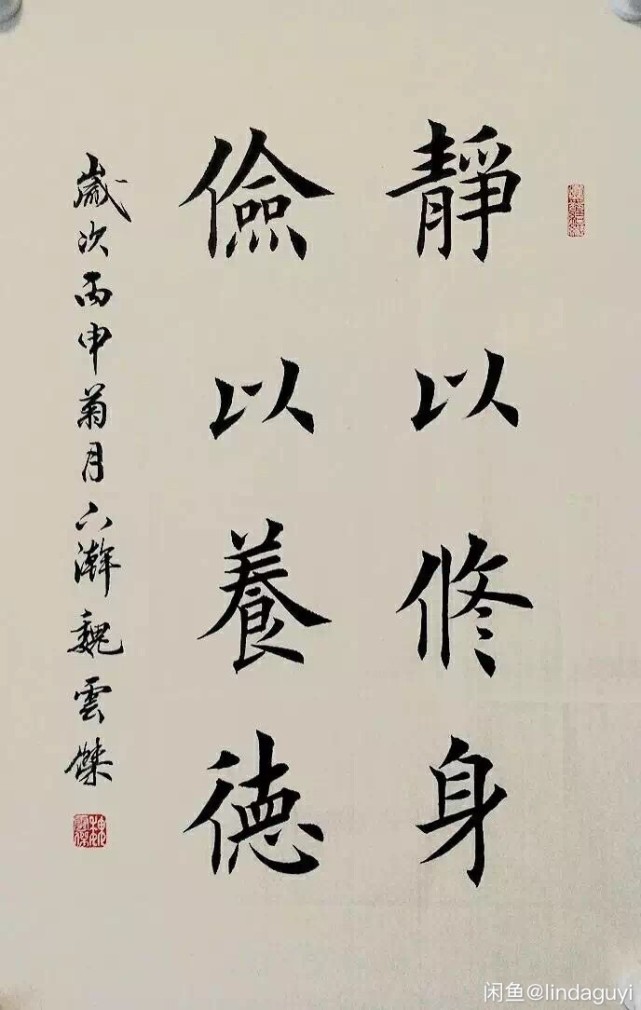 靜以修身
儉以養德
歲次丙申菊月六瀚魏雲傑
闲鱼@lindaguyi